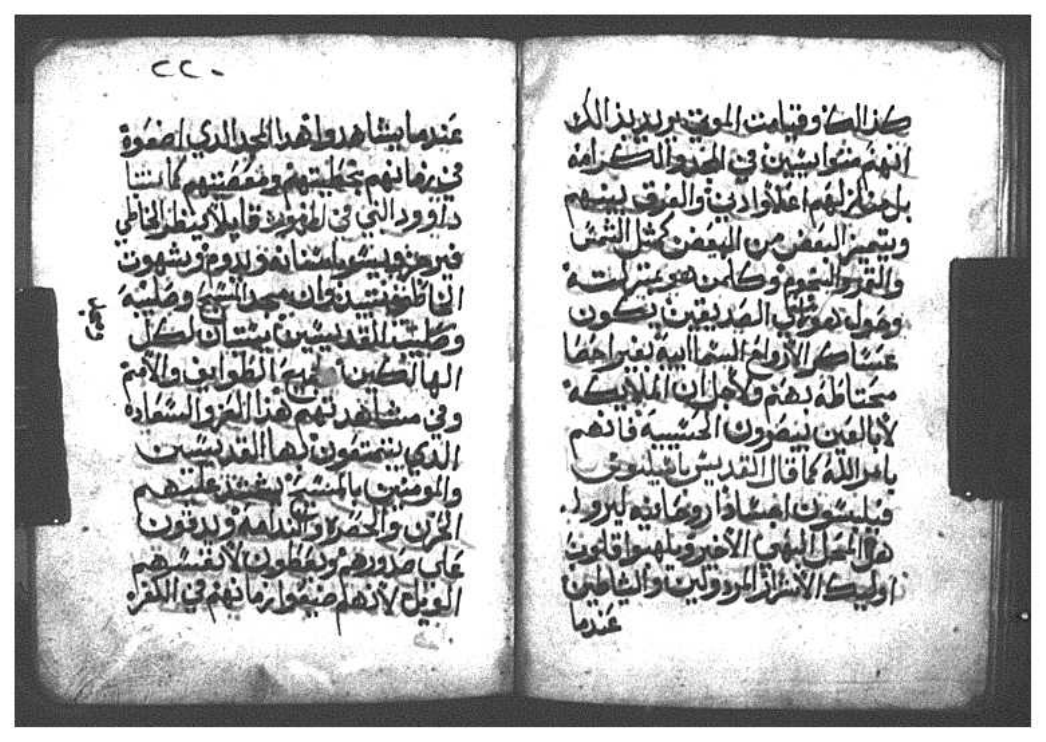 كذالك وقيامت الموتى يريد بذالك
انهم متساويين في المجد والكرامه
بل منازلهم اعلا وادني والفرق بينهم
ويتميز البعض من البعض كمثل الشمس
والقمر والنجوم وكلمن هو بمنزلته
وحول هولاي الصديقين يكون
عساكر الارواح السماايية بغير احصا
محتاطه بهم ولاجل ان الملايكة
لا بالعين ينضرون الحسيه فانهم
بامر الله كما قال القديس باسيليوس
فيلبسون اجسادا روحانيه
هذا المحل البهي الاخير ويلهبوا قلوب
اوليك الاشرار المرذولين والشياطين
عندما
٢٢٠
عندما يشاهدوا هذا المجد الدي اضعوة
في زمانهم بخطيتهم ومعصيتهم كما
داوود النبي في المزمور قايلا ينظر الخاطي
ويدوم وشهوت
وان مجد المسيح وصليبه
القديسين لكل
الهالكين لجميع الطوايف والامم
وفي مشاهدتهم هذا العز والسعاده
الدي يتمتعون بها القديسين
والمومنين بالمسيح يشتد عليهم
الحزن والحصره والندامه ويدقون
على صدورهم ويعطون لانفسهم
الويل لانهم ضيعوا زمانهم في الكفر